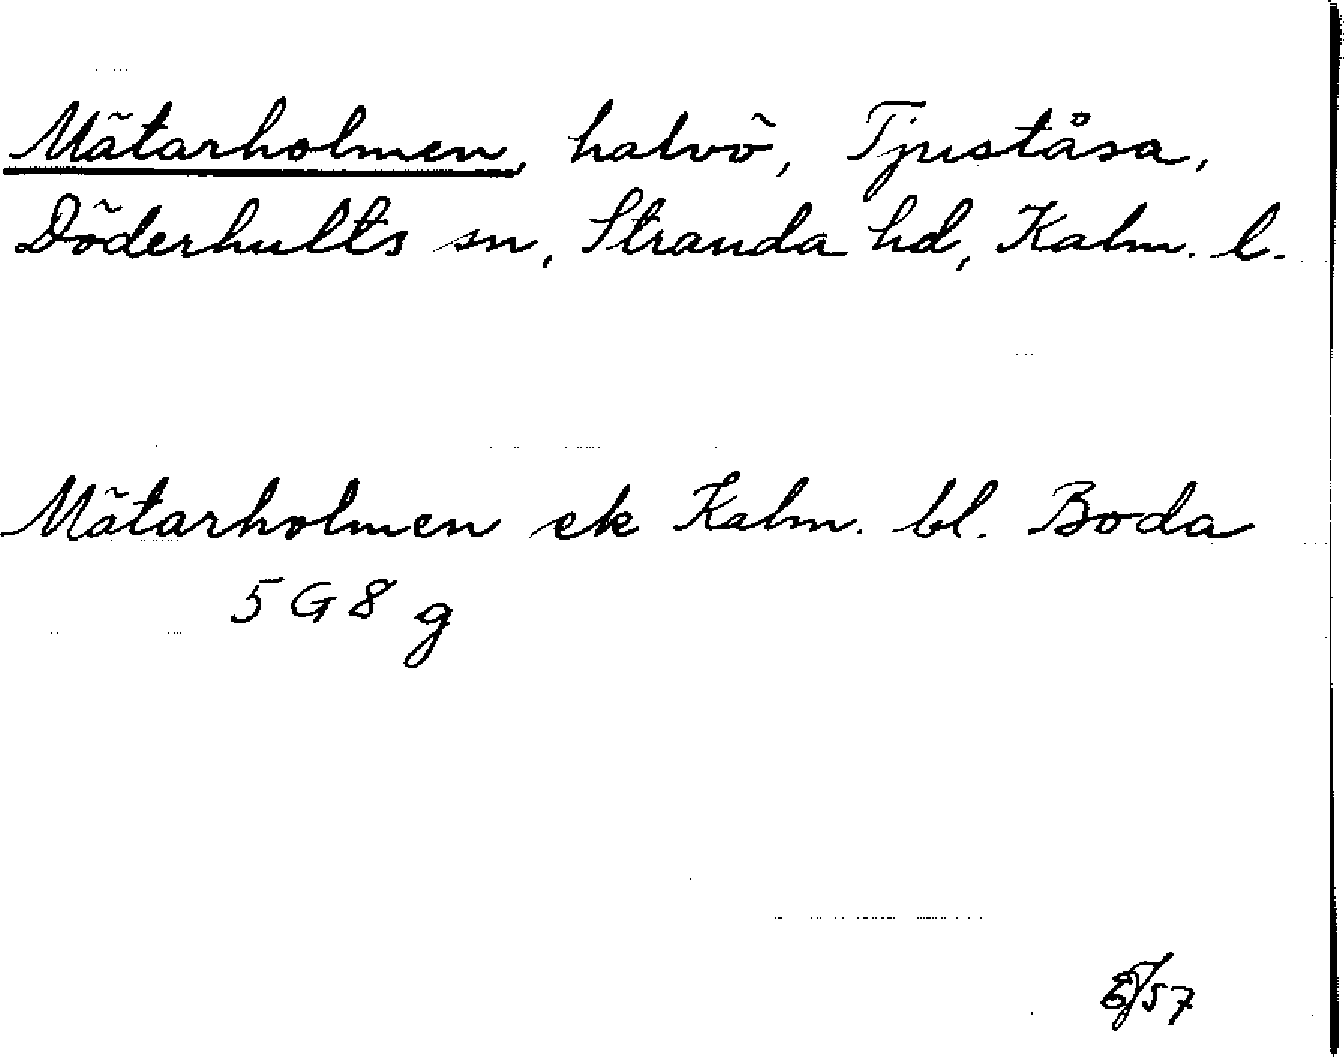 Mätarholmen, halvö, Tjuståsa,
Döderhults sn, Stranda hd, Kalm. l.
Mätarholmen ek Kalm. bl. Boda
5 G 8 g